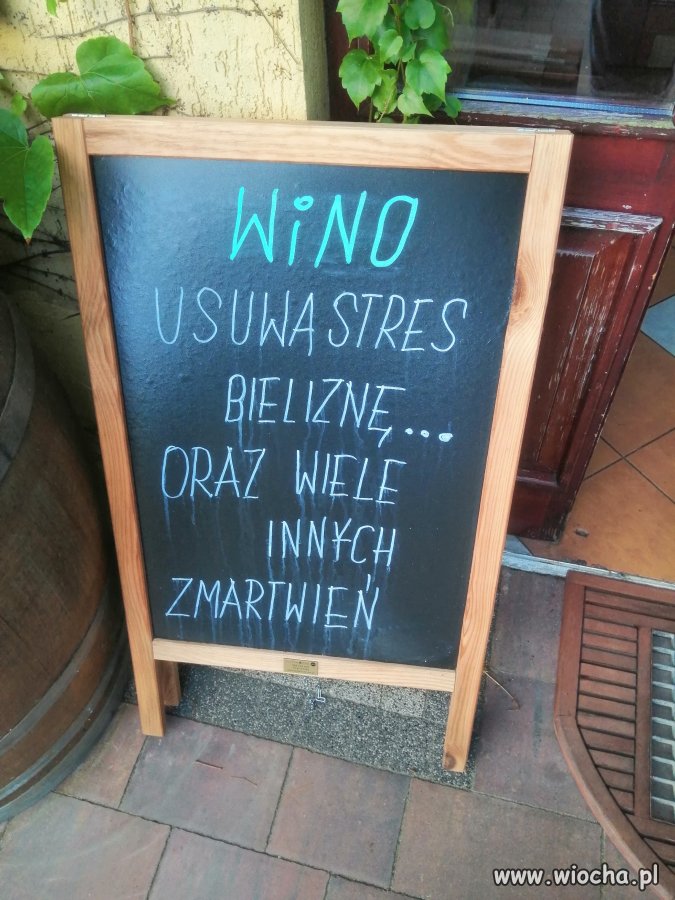 WiNO
USUWA STRES
BIELIZNĘ...
ORAZ WIELE
INNYCH
ZMARTWIEŃ
www.wiocha.pl